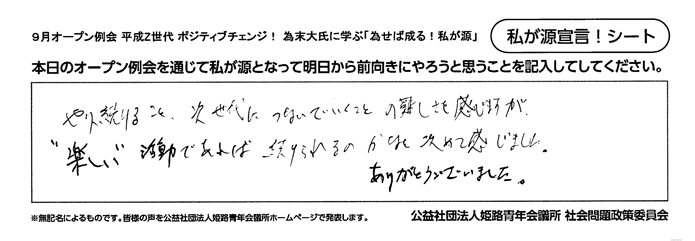 9月オープン例会 平成Z世代 ポジティブチェンジ！ 為末大氏に学ぶ「為せば成る！私が源」
私が源宣言！シート
本日のオープン例会を通じて私が源となって明日から前向きにやろうと思うことを記入してしてください。
やり続けること、次世代につないでいくことの難しさを感じますが、
"楽しい" 活動であれば 続けられるのかなと 改めて感じました。
ありがとうございました。
※無記名によるものです。皆様の声を公益社団法人姫路青年会議所ホームページで発表します。
公益社団法人姫路青年会議所 社会問題政策委員会